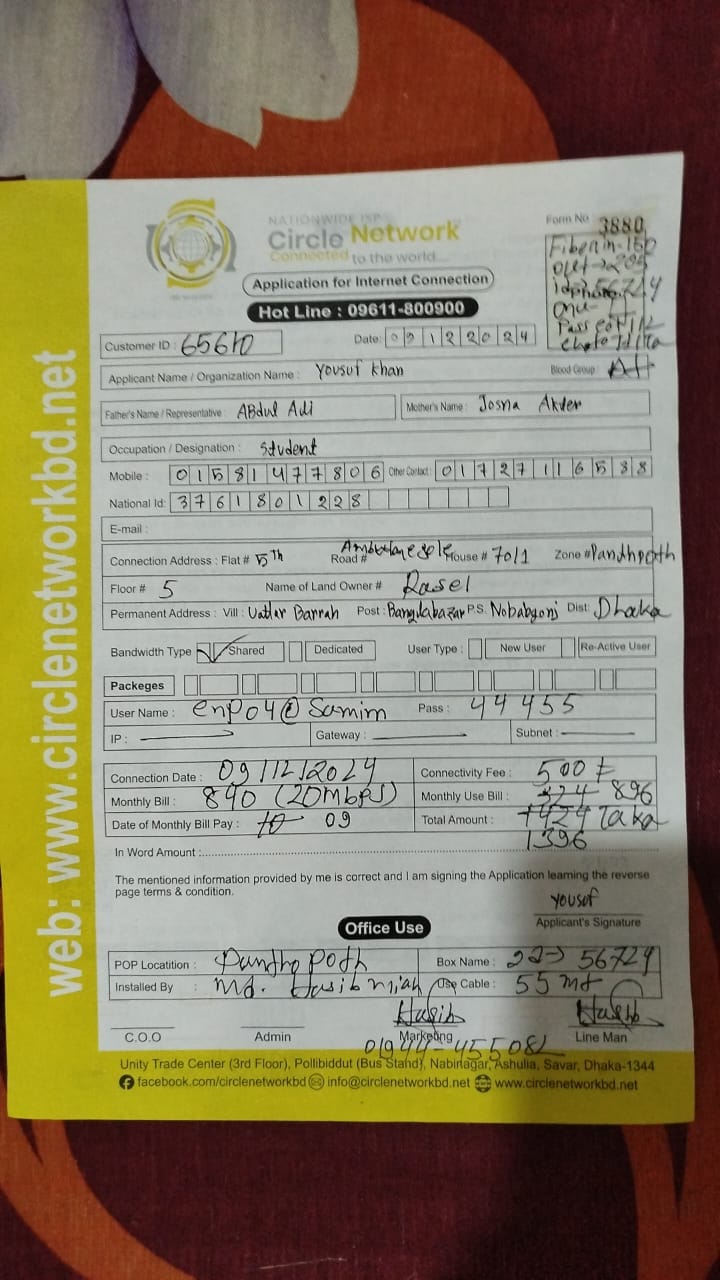 NATIONWIDE ISP
Circle Network
Connected to the world......
Form No 3880
Application for Internet Connection
Hot Line : 09611-800900
Customer ID :
Date: 09122024
Applicant Name / Organization Name : Yousuf Khan
Blood Group :
Father's Name / Representative : ABdul Adi
Mother's Name : Josna Akter
Occupation / Designation : Student
Mobile : 01581477806 Other Contact : 01727116588
National Id: 3761801228
E-mail :
Connection Address : Flat # 5th Road # House # 70/1 Zone #
Floor # 5 Name of Land Owner # Rasel
Permanent Address : Vill : Barrah Post : Banglabazar P.S. Nobabgonj Dist: Dhaka
Bandwidth Type Shared Dedicated User Type : New User Re-Active User
Packeges
User Name : enp04@Samim Pass : 44455
IP : Gateway : Subnet :
Connection Date : 09/12/2024 Connectivity Fee : 500
Monthly Bill : 840 (20mbps) Monthly Use Bill : 896
Date of Monthly Bill Pay : 09 Total Amount : Taka
1396
In Word Amount :
The mentioned information provided by me is correct and I am signing the Application learning the reverse
page terms & condition.
Yousuf
Applicant's Signature
Office Use
POP Locatition : Pantho Poth Box Name : 22→ 56724
Installed By : Md. Hasib miah Use Cable : 55 mt
Hasib Hasib
C.O.O Admin Marketing Line Man
01944-455082
Unity Trade Center (3rd Floor), Pollibiddut (Bus Stand), Nabinagar, Ashulia, Savar, Dhaka-1344
facebook.com/circlenetworkbd info@circlenetworkbd.net www.circlenetworkbd.net
web: www.circlenetworkbd.net